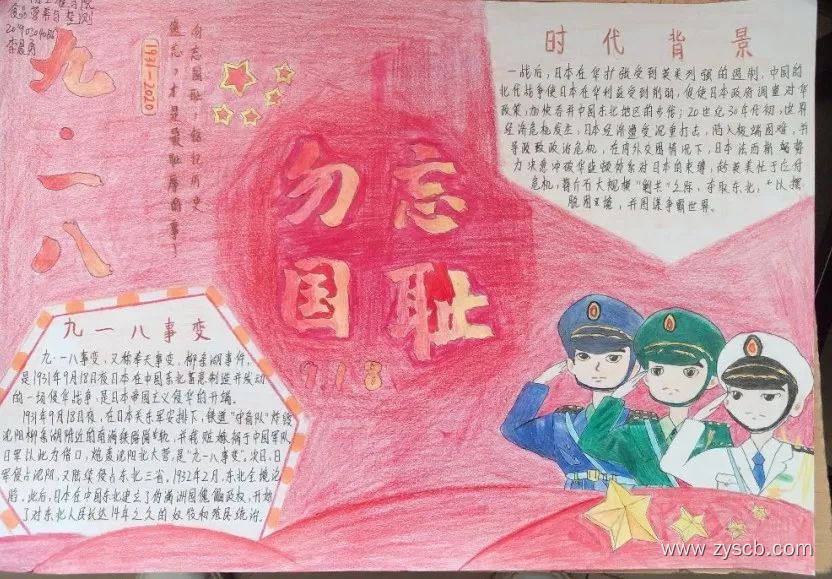 食品营养与检测
李晨角
九·一八
1931—2020
勿忘国耻，铭记历史
遗忘，才是最耻辱的事！
勿忘
国耻
9.18
时代背景
一战后，日本在华扩张受到英美列强的遏制，中国的
北伐战争使日本在华利益受到削弱，促使日本政府调整对华
政策，加快吞并中国东北地区的步伐；20世纪30年代初，世界
经济危机发生，日本经济遭受沉重打击，陷入极端困难，并
导致政治危机，在内外交困情况下，日本法西斯势
力决意冲破华盛顿体系对日本的束缚，趁英美忙于应付
危机，蒋介石大规模“剿共”之际，夺取东北，以摆
脱困境，并图谋争霸世界。
九一八事变
九·一八事变，又称奉天事变、柳条湖事件，
是1931年9月18日夜日本在中国东北蓄意制造并发动
的一场侵华战争，是日本帝国主义侵华的开端。
1931年9月18日夜，在日本关东军安排下，铁道“守备队”炸毁
沈阳柳条湖附近的南满铁路路轨，并栽赃嫁祸于中国军队
日军以此为借口，炮轰沈阳北大营，是“九一八事变”。次日，日
军侵占沈阳，又陆续侵占东北三省。1932年2月，东北全境沦
陷。此后，日本在中国东北建立了伪满洲国傀儡政权，开始
了对东北人民长达14年之久的奴役和殖民统治。
www.zyscb.com